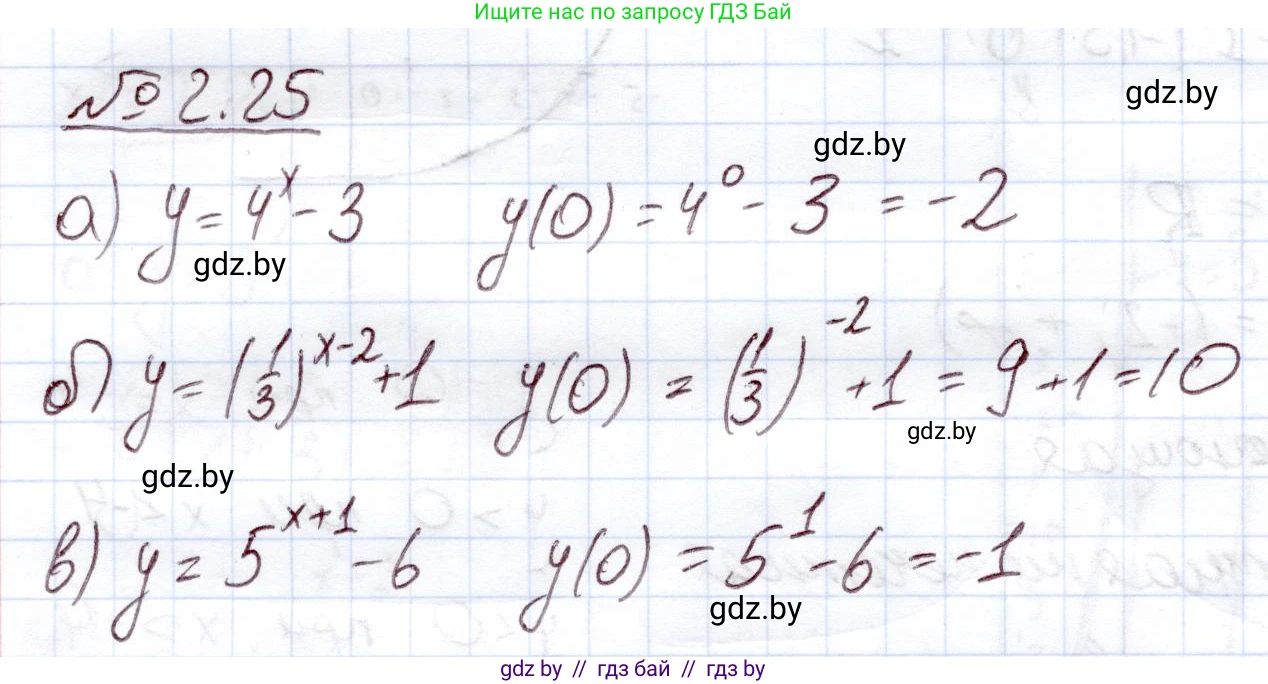 Ищите нас по запросу ГДЗ Бай
№ 2.25
gdz.by
gdz.by
а) y = 4^x - 3 y(0) = 4^0 - 3 = -2
gdz.by
б) y = (1/3)^(x-2) + 1 y(0) = (1/3)^(-2) + 1 = 9 + 1 = 10
gdz.by
gdz.by
в) y = 5^(x+1) - 6 y(0) = 5^1 - 6 = -1
gdz.by
gdz.by // гдз бай // гдз by